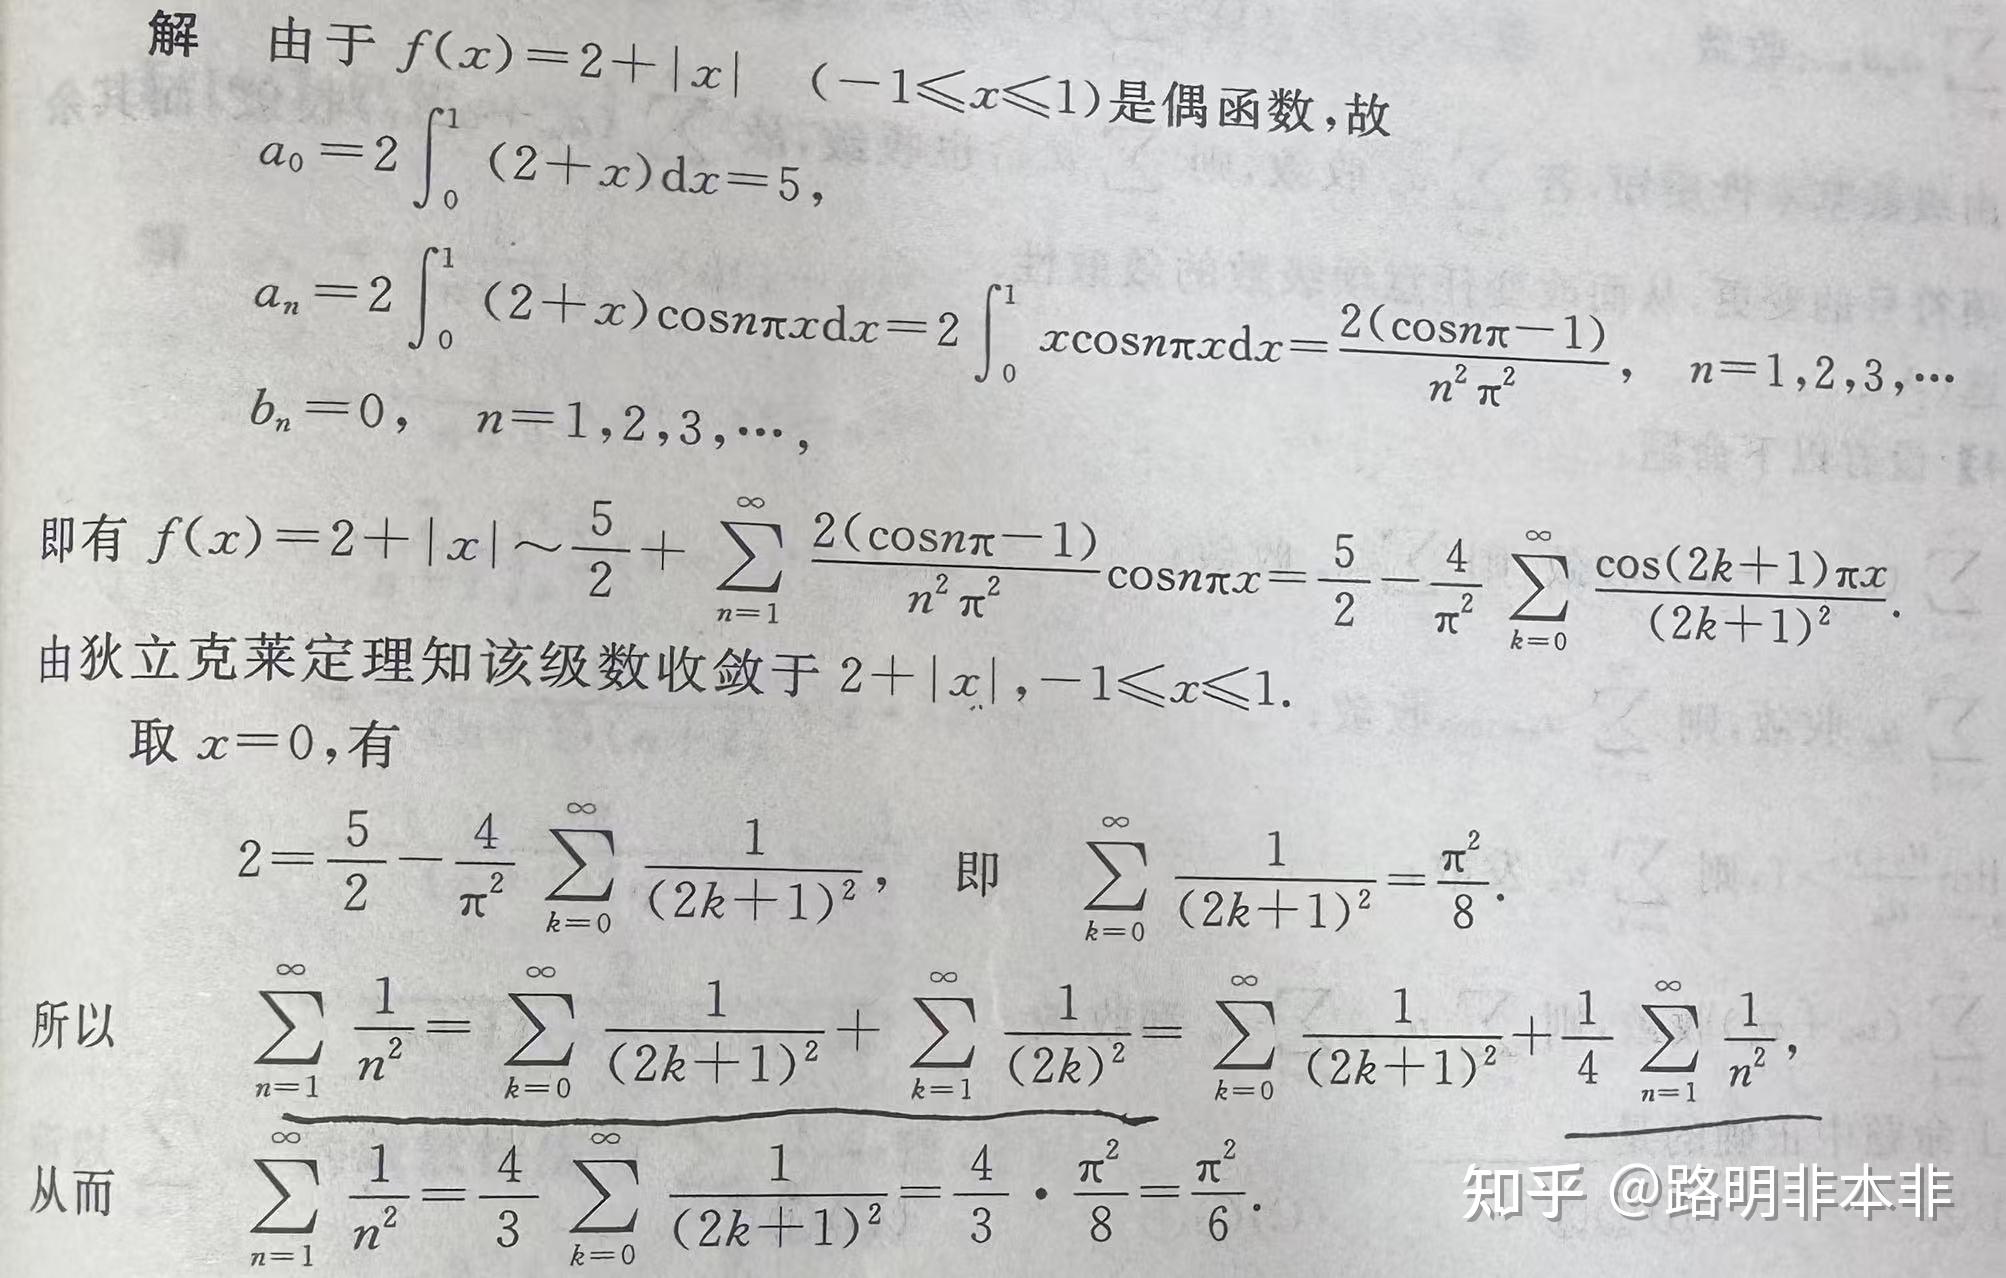 解 由于 f(x)=2+|x| (-1≤x≤1)是偶函数,故
a₀=2∫₀¹(2+x)dx=5,
aₙ=2∫₀¹(2+x)cosnπxdx=2∫₀¹xcosnπxdx=\frac{2(cosnπ-1)}{n²π²}, n=1,2,3,⋯
bₙ=0, n=1,2,3,⋯,
即有 f(x)=2+|x|~\frac{5}{2}+\sum_{n=1}^{∞}\frac{2(cosnπ-1)}{n²π²}cosnπx=\frac{5}{2}-\frac{4}{π²}\sum_{k=0}^{∞}\frac{cos(2k+1)πx}{(2k+1)²}.
由狄立克莱定理知该级数收敛于 2+|x|,-1≤x≤1.
取 x=0,有
2=\frac{5}{2}-\frac{4}{π²}\sum_{k=0}^{∞}\frac{1}{(2k+1)²}, 即 \sum_{k=0}^{∞}\frac{1}{(2k+1)²}=\frac{π²}{8}.
所以 \sum_{n=1}^{∞}\frac{1}{n²}=\sum_{k=0}^{∞}\frac{1}{(2k+1)²}+\sum_{k=1}^{∞}\frac{1}{(2k)²}=\sum_{k=0}^{∞}\frac{1}{(2k+1)²}+\frac{1}{4}\sum_{n=1}^{∞}\frac{1}{n²},
从而 \sum_{n=1}^{∞}\frac{1}{n²}=\frac{4}{3}\sum_{k=0}^{∞}\frac{1}{(2k+1)²}=\frac{4}{3}·\frac{π²}{8}=\frac{π²}{6}.
知乎 @路明非本非